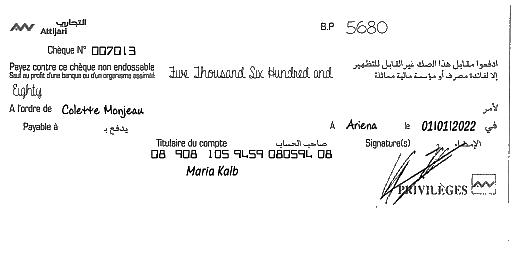 التجاري
Attijari
B.P 5680
Chèque N° 007013
Payez contre ce chèque non endossable
Sauf au profit d'une banque ou d'un organisme assimilé
Five Thousand Six Hundred and
ادفعوا مقابل هذا الصك غير القابل للتظهير
إلا لفائدة مصرف أو مؤسسة مالية مماثلة
Eighty
A l'ordre de Colette Monjeau
لأمر
Payable à
يدفع بـ
A Ariena le 01/01/2022 في
Titulaire du compte صاحب الحساب
Signature(s) الإمضاء
08 908 105 9459 080594 08
Maria Kalb
PRIVILÈGES